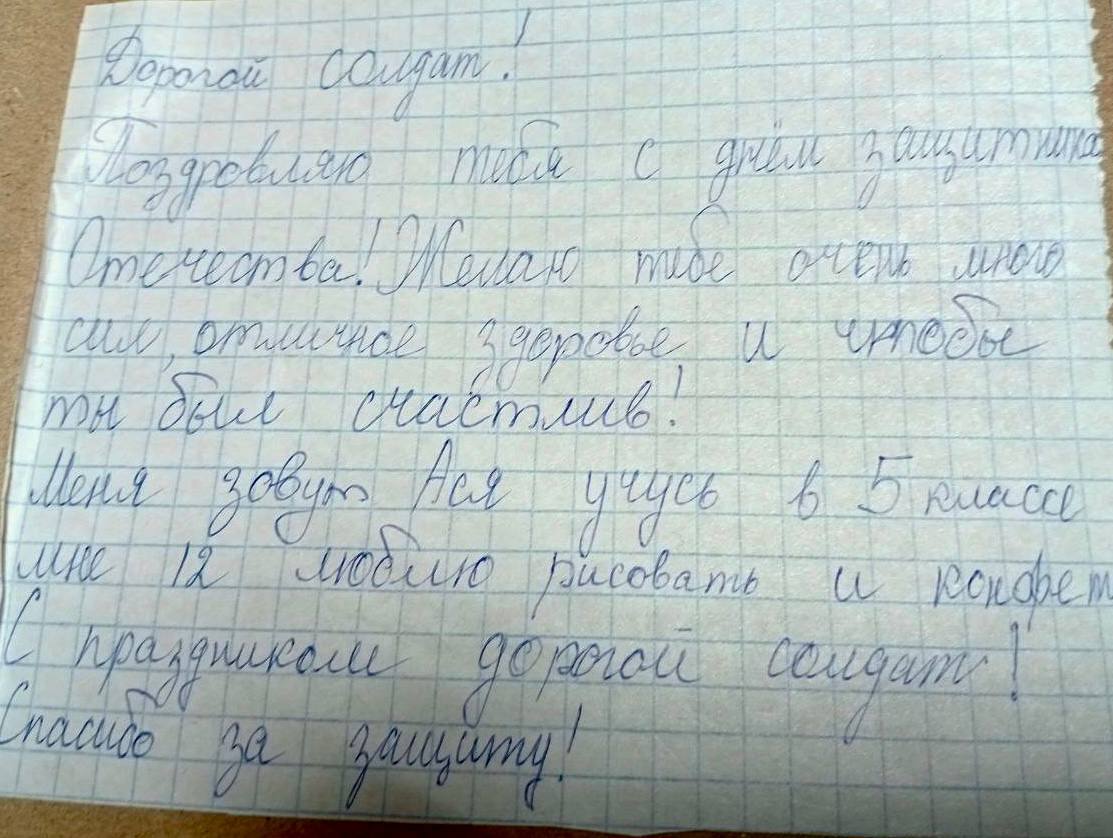 Дорогой солдат!
Поздровляю тебя с днём защитника
Отечества! Желаю тебе очень много
сил, отличное здоровье и чтобы
ты был счастлив!
Меня зовут Ася учусь в 5 классе
мне 12 люблю рисовать и конфет
С праздником дорогой солдат!
Спасибо за защиту!